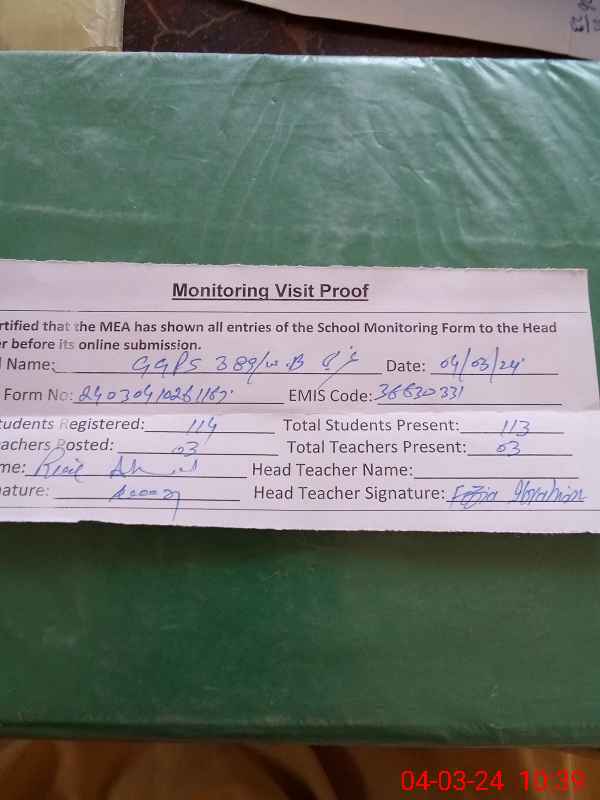 Monitoring Visit Proof
rtified that the MEA has shown all entries of the School Monitoring Form to the Head
r before its online submission.
l Name: GGPS 389/W.B Date: 04/03/24
Form No: EMIS Code: 36630331
tudents Registered: 114 Total Students Present: 113
achers Posted: 03 Total Teachers Present: 03
me: Head Teacher Name:
nature: Head Teacher Signature: Fozia Ibrahim
04-03-24 10:39